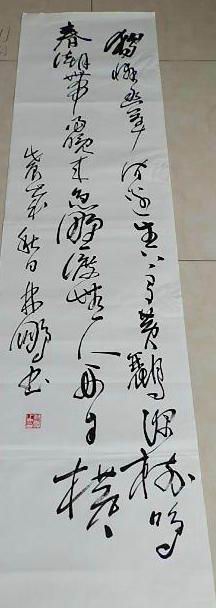 獨憐幽草澗邊生上有黃鸝深樹鳴
春潮帶雨晚來急野渡無人舟自橫
秋日林鵬書